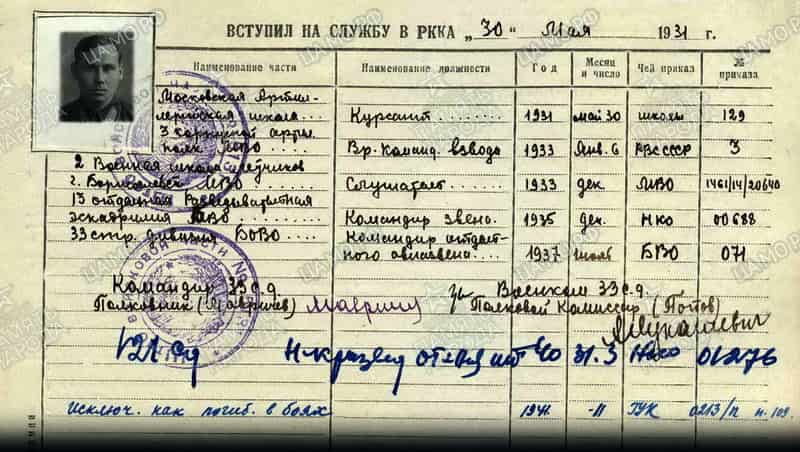 ВСТУПИЛ НА СЛУЖБУ В РККА „30“ Мая 1931 г.
Наименование части Наименование должности Год Месяц и число Чей приказ № приказа
Московская Артил-
лерийская школа.... Курсант........ 1931 май 30 школы 129
3 корпусной артил.
полк МВО.... Вр. Команд. взвода 1933 Янв. 6 РВС СССР 3
2 Военная школа летчиков
г. МВО Слушатель..... 1933 дек МВО 1461/14/20640
13 отдельная Разведывательная
эскадрилия МВО Командир звена. 1935 Дек. НКО 00688
33 стр. дивизия БОВО.... Командир отдель-
ного авиазвена.... 1937 июль БВО 071
Командир 33 с.д. за Военком 33 с.д.
Полковник ( ) Полковой Комиссар (Попов)
121 сд 40 31.3 НКО 01276
Исключ. как погиб. в боях 1941. -11 ГУК 0213/п н. 109.
ЦАМО.РФ